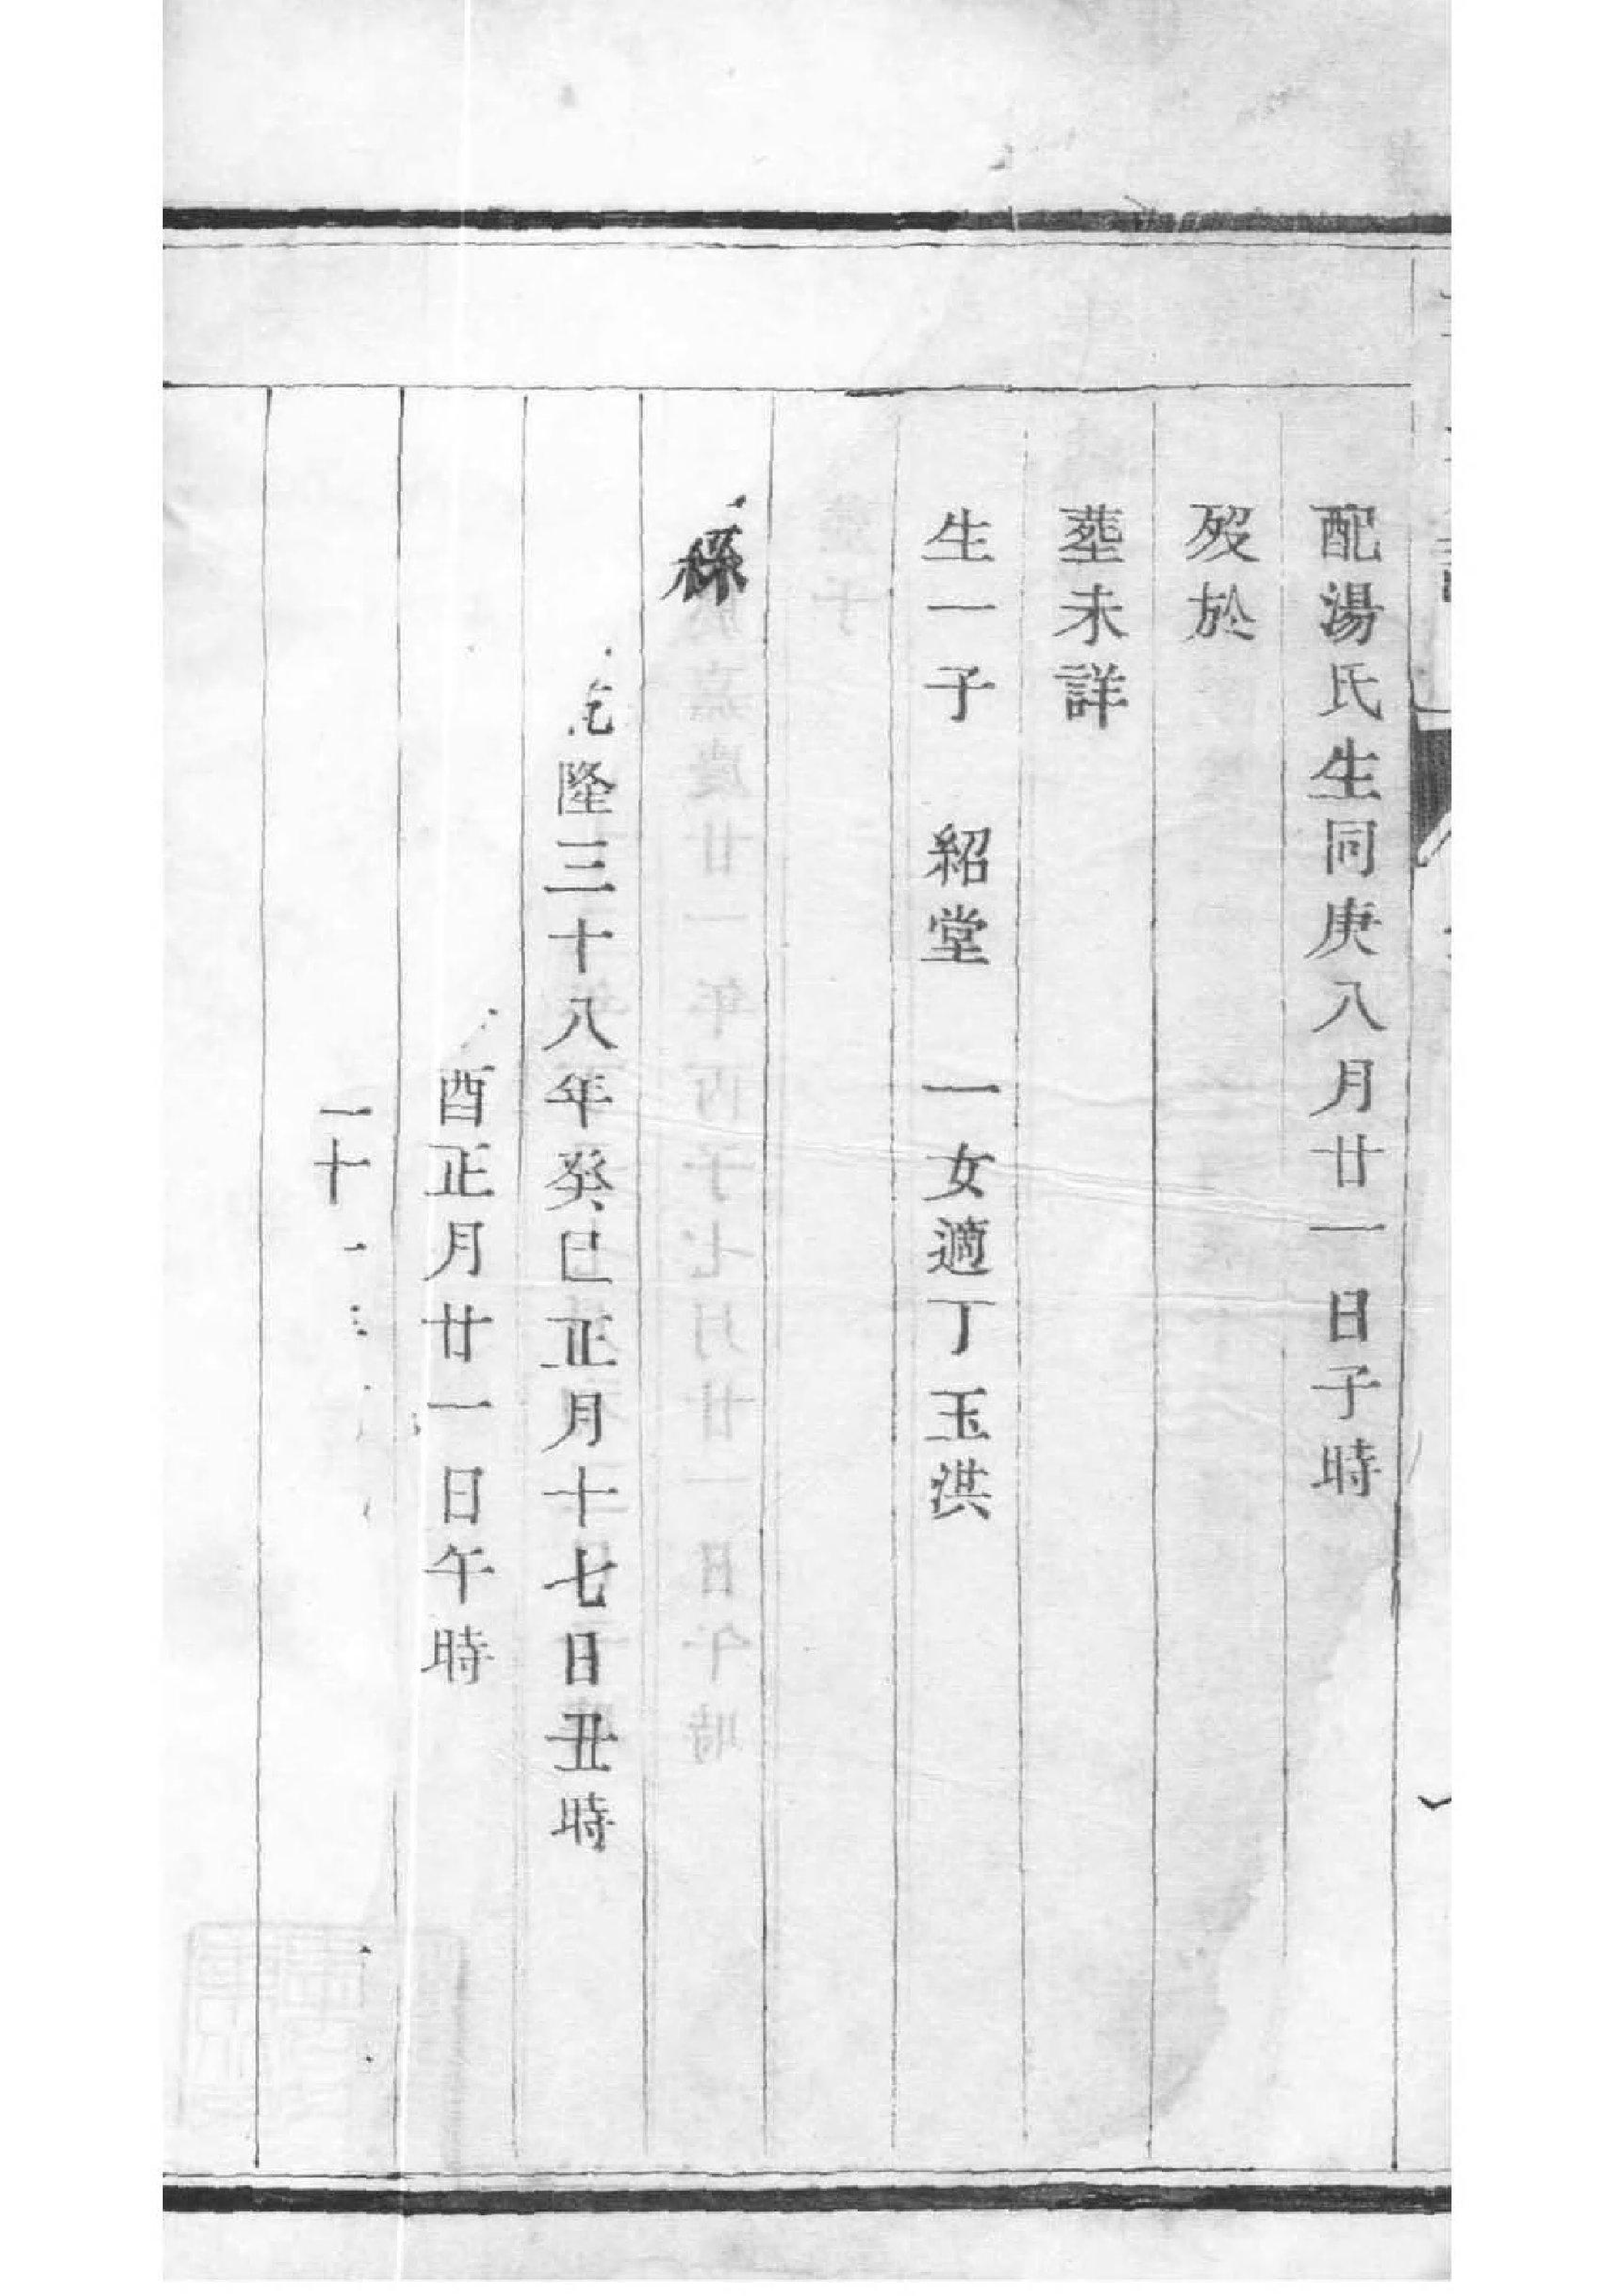 配湯氏生同庚八月廿一日子時
歿於
葬未詳
生一子 紹堂 一女適丁玉洪
乾隆三十八年癸巳正月十七日丑時
酉正月廿一日午時